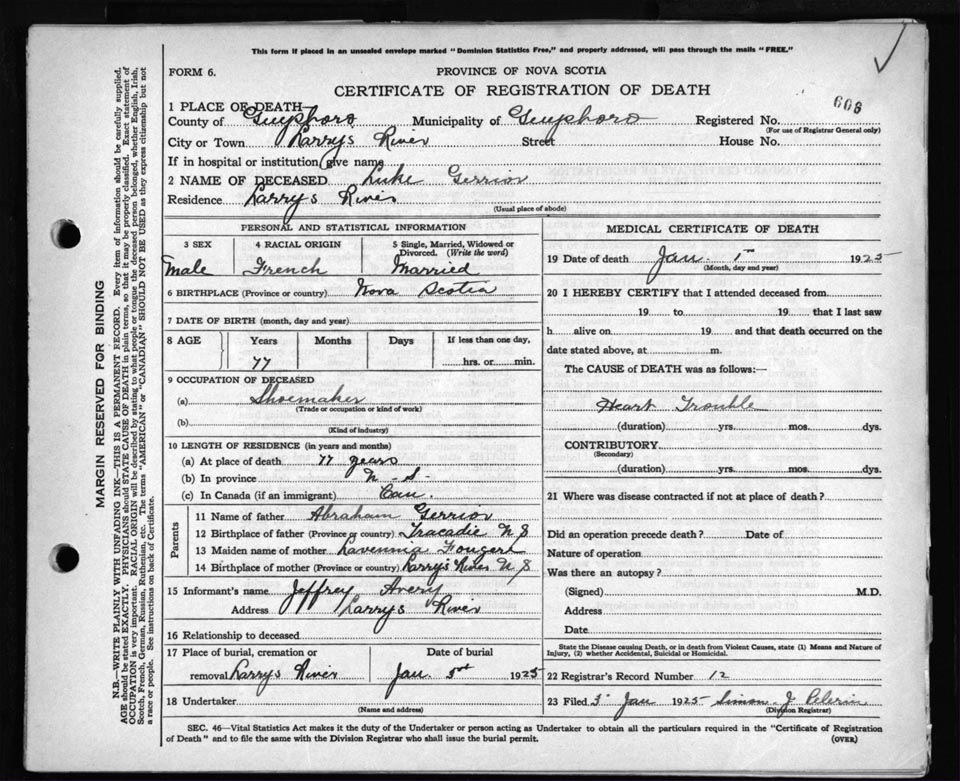 This form if placed in an unsealed envelope marked "Dominion Statistics Free," and properly addressed, will pass through the mails "FREE."
FORM 6.
PROVINCE OF NOVA SCOTIA
CERTIFICATE OF REGISTRATION OF DEATH
608
1 PLACE OF DEATH—
County of Guysboro Municipality of Guysboro Registered No.
(For use of Registrar General only)
City or Town Larrys River Street House No.
If in hospital or institution give name
2 NAME OF DECEASED Luke Gerrior
Residence Larrys River
(Usual place of abode)
PERSONAL AND STATISTICAL INFORMATION
3 SEX 4 RACIAL ORIGIN 5 Single, Married, Widowed or Divorced. (Write the word)
Male French Married
6 BIRTHPLACE (Province or country) Nova Scotia
7 DATE OF BIRTH (month, day and year)
8 AGE Years Months Days If less than one day,
77 hrs. or min.
9 OCCUPATION OF DECEASED
(a) Shoemaker
(Trade or occupation or kind of work)
(b)
(Kind of industry)
10 LENGTH OF RESIDENCE (in years and months)
(a) At place of death 77 years
(b) In province N-S-
(c) In Canada (if an immigrant) Can.
Parents
11 Name of father Abraham Gerrior
12 Birthplace of father (Province or country) Tracadie N S
13 Maiden name of mother Fougere
14 Birthplace of mother (Province or country) Larrys River N S
15 Informant's name Jeffrey Avery
Address Larrys River
16 Relationship to deceased
17 Place of burial, cremation or Date of burial
removal Larrys River Jan 1925
18 Undertaker
(Name and address)
MEDICAL CERTIFICATE OF DEATH
19 Date of death Jan 1 1925
(Month, day and year)
20 I HEREBY CERTIFY that I attended deceased from
19 to 19 that I last saw
h alive on 19 and that death occurred on the
date stated above, at m.
The CAUSE of DEATH was as follows:—
Heart Trouble
(duration) yrs. mos. dys.
CONTRIBUTORY
(Secondary)
(duration) yrs. mos. dys.
21 Where was disease contracted if not at place of death?
Did an operation precede death? Date of
Nature of operation
Was there an autopsy?
(Signed) M.D.
Address
Date
State the Disease causing Death, or in death from Violent Causes, state (1) Means and Nature of
Injury, (2) whether Accidental, Suicidal or Homicidal.
22 Registrar's Record Number 12
23 Filed 3 Jan 1925 Simon J Pelerin
(Division Registrar)
SEC. 46—Vital Statistics Act makes it the duty of the Undertaker or person acting as Undertaker to obtain all the particulars required in the "Certificate of Registration
of Death" and to file the same with the Division Registrar who shall issue the burial permit. (OVER)
MARGIN RESERVED FOR BINDING
N.B.—WRITE PLAINLY WITH UNFADING INK—THIS IS A PERMANENT RECORD. Every item of information should be carefully supplied.
AGE should be stated EXACTLY. PHYSICIANS should STATE CAUSE OF DEATH in plain terms, so that it may be properly classified. Exact statement of
OCCUPATION is very important. RACIAL ORIGIN will be described by stating to what people or tongue the deceased person belonged, whether English, Irish,
Scotch, French, German, Russian, Ruthenian, etc. The terms "AMERICAN" or "CANADIAN" SHOULD NOT BE USED as they express citizenship but not
a race or people. See instructions on back of Certificate.